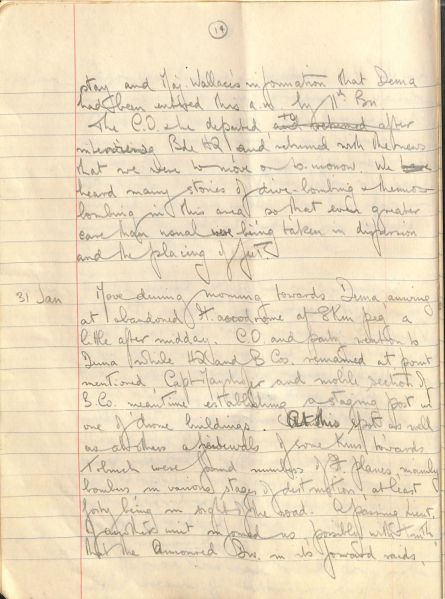 14
stay and Maj. Wallace's information that Derna
had been entered this a.m. by 11th Bn
The C.O. he departed to and returned after
Bde HQ and returned with the news
that we were to move on to-morrow. We have
heard many stories of dive-bombing & thermos
bombing in this area so that even greater
care than usual were being taken in dispersion
and the placing of
31 Jan Move during morning towards Derna arriving
at abandoned It. aerodrome at 8 Km peg a
little after midday. C.O. and party to
Derna while HQ and B Co. remained at point
mentioned. Capt and mobile section of
B Co. meantime establishing a staging post in
one of drome buildings. At this spot as well
as at others of some Kms towards
Tobruk were found numbers of It. planes mainly
bombers in various stages of destruction at least
forty being in sight of the road. A passing
of another unit informed us, possibly with truth,
that the Armoured Div. in its forward raids,